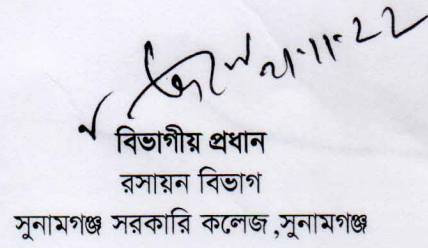 21-11-22
বিভাগীয় প্রধান
রসায়ন বিভাগ
সুনামগঞ্জ সরকারি কলেজ ,সুনামগঞ্জ